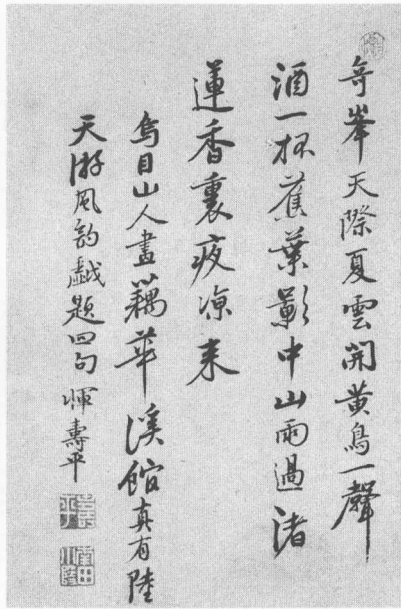 奇峯天際夏雲開黃鳥一聲
酒一杯蕉葉影中山雨過渚
蓮香裏夜凉來
烏目山人畫藕華溪館真有陸
天游風韵戲題四句 惲壽平
壽平